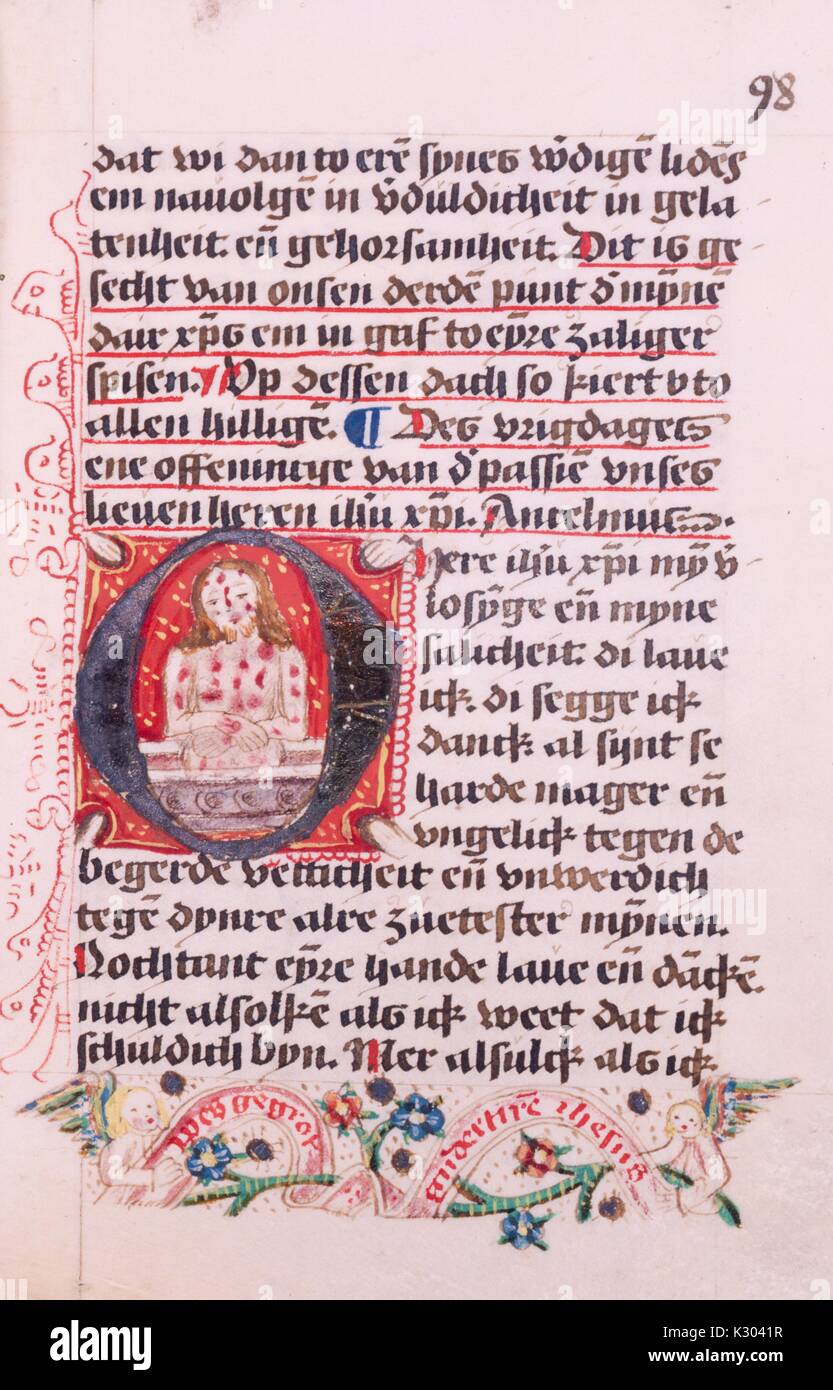 98
dat wi dan to erē synes w̄digē lidēs
em nauolgē in v̄duldicheit in gela
tenheit. en̄ gehorsamheit. Dit is ge
secht van onsen derdē punt d' mȳnē
dair xp̄s em in gaf to eȳre zaliger
spisen. Vp dessen dach so kiert v to
allen hilligē. ¶ Des vrigdages
ene offeninge van d' passiē vnses
lieuen heren ihū xp̄i. Ancelmus.
O Here ihū xp̄i mȳ v̄
losȳge en̄ myne
salicheit. di laue
ick. di segge ick
danck. al synt se
harde mager en̄
vngelick tegen de
begerde vetticheit en̄ vnwerdich
tegē dynre alre zuetester mȳnen.
Nochtant eȳre hande laue en̄ dāckē
nicht alsolkē als ick weet dat ick
schuldich byn. Mer alsulck als ick
wes gegrot
ihesus
alamy
Image ID: K3041R
www.alamy.com